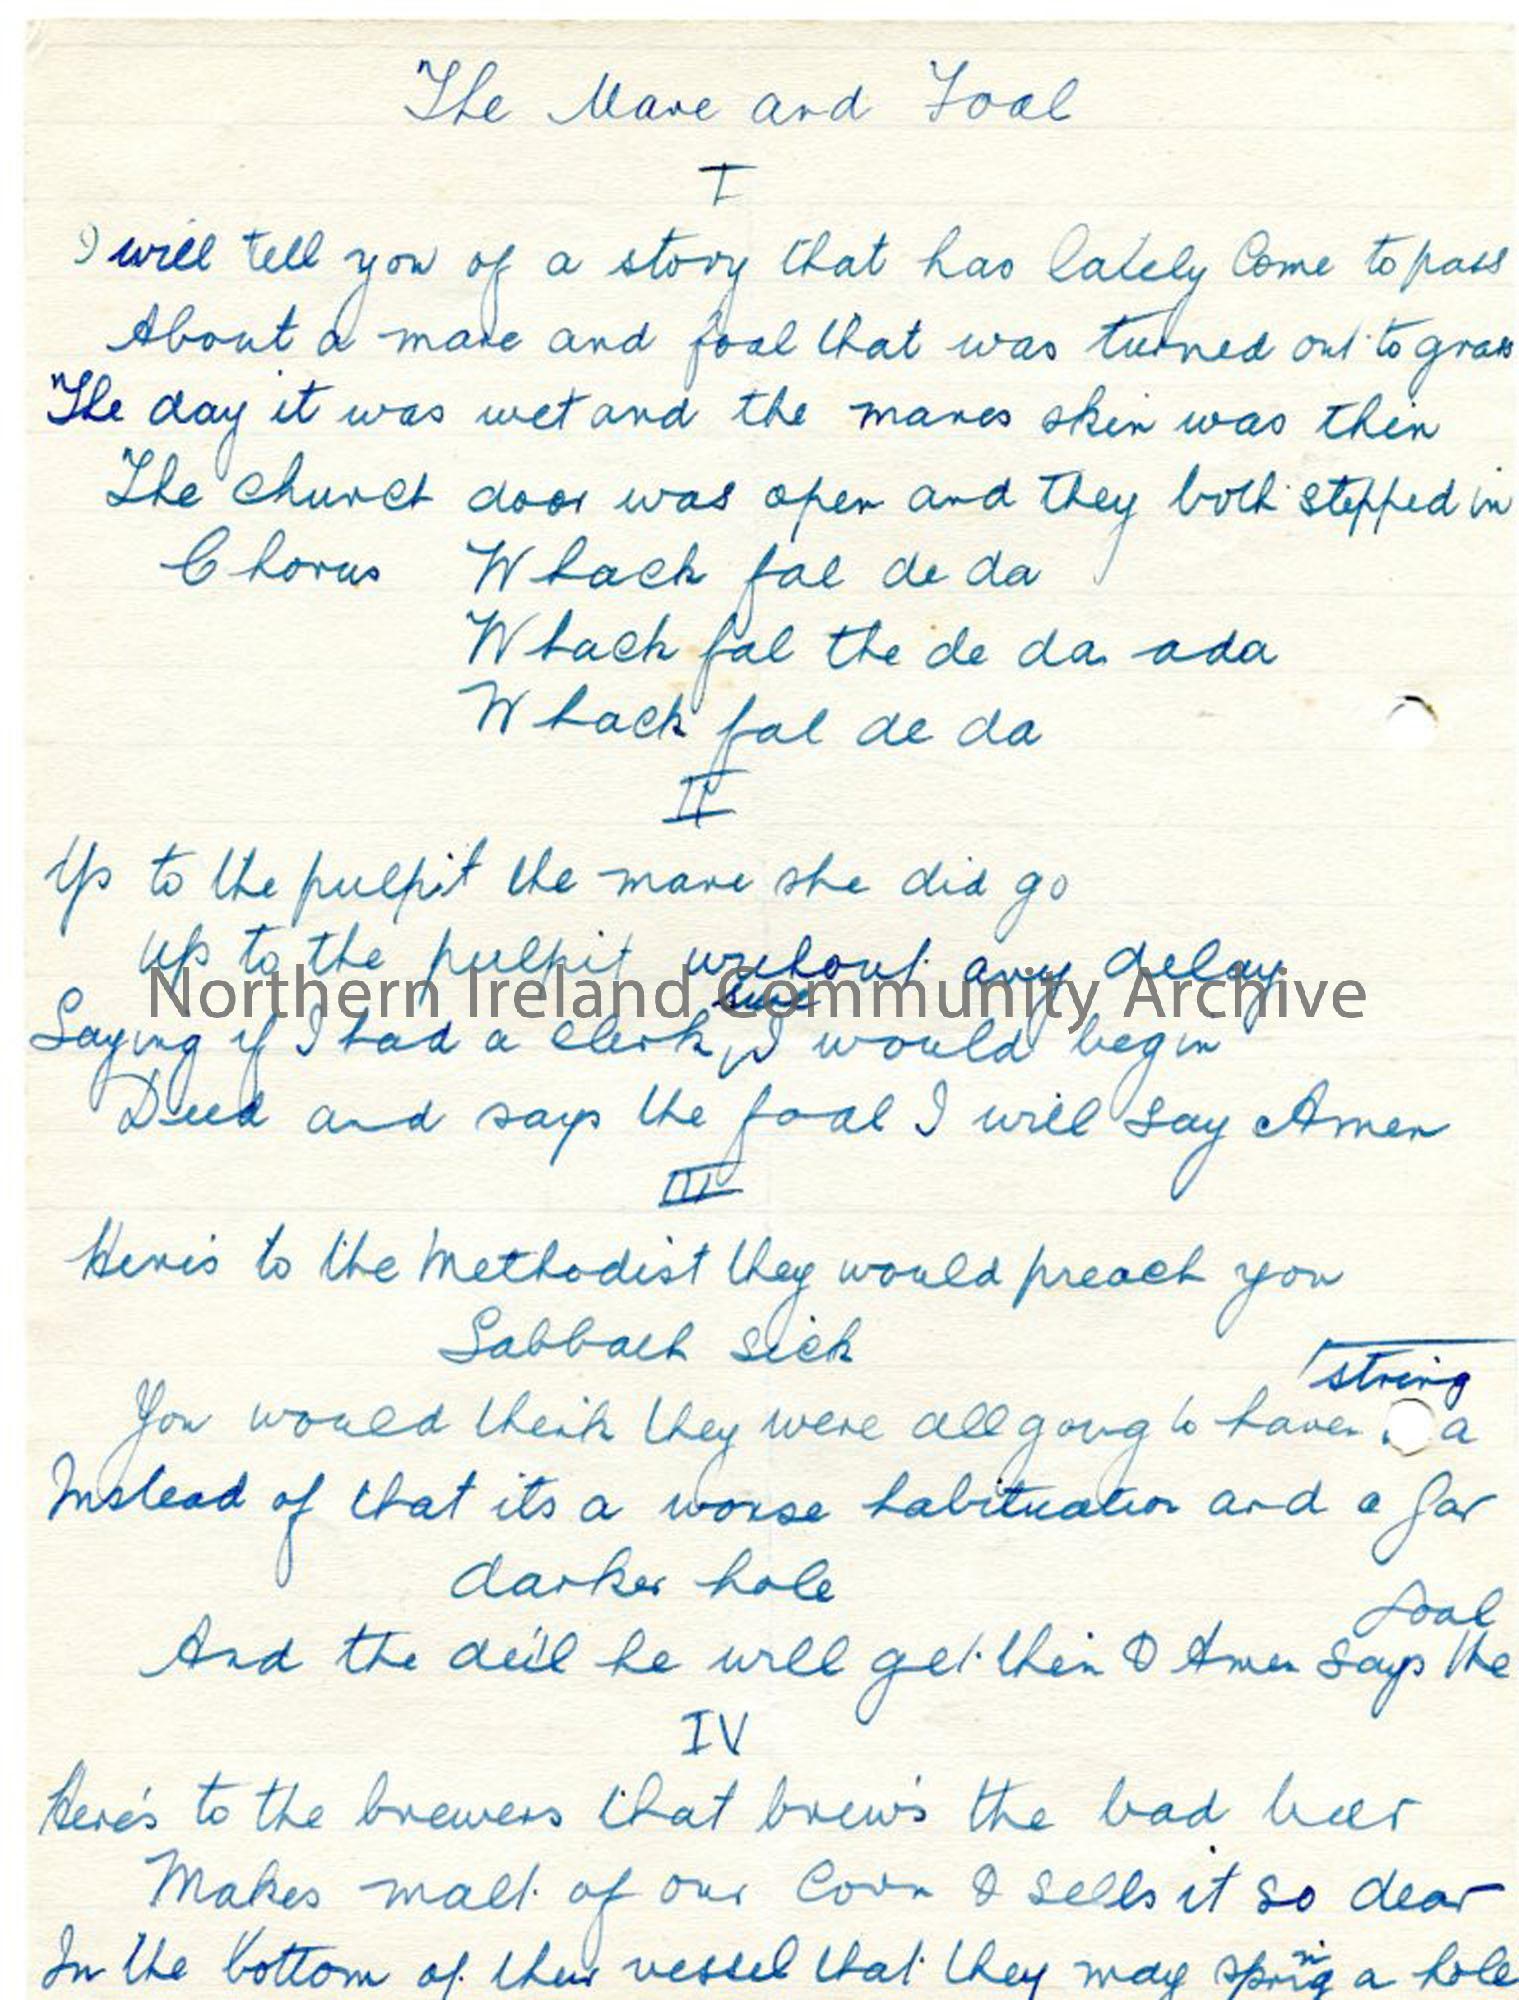 The Mare and Foal
I
I will tell you of a story that has lately Come to pass
About a mare and foal that was turned out to grass
The day it was wet and the mares skin was thin
The church door was open and they both stepped in
Chorus Whack fal de da
Whack fal the de da ada
Whack fal de da
II
Up to the pulpit the mare she did go
Up to the pulpit without any delay
Northern Ireland Community Archive
sure
Saying if I had a clerk, I would begin
Deed and says the foal I will say Amen
III
Here's to the Methodist they would preach you
Sabbath sick
string
You would think they were all going to haven a
Instead of that its a worse habituation and a far
darker hole
foal
And the de'il he will get them & Amen says the
IV
Here's to the brewers that brew's the bad beer
Makes malt of our Corn & sells it so dear
In the bottom of their vessel that they may spring a hole